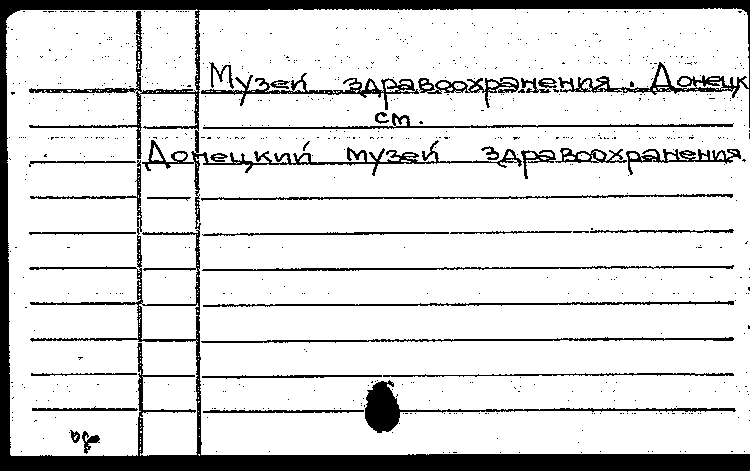 Музей здравоохранения. Донецк
см.
Донецкий музей здравоохранения.